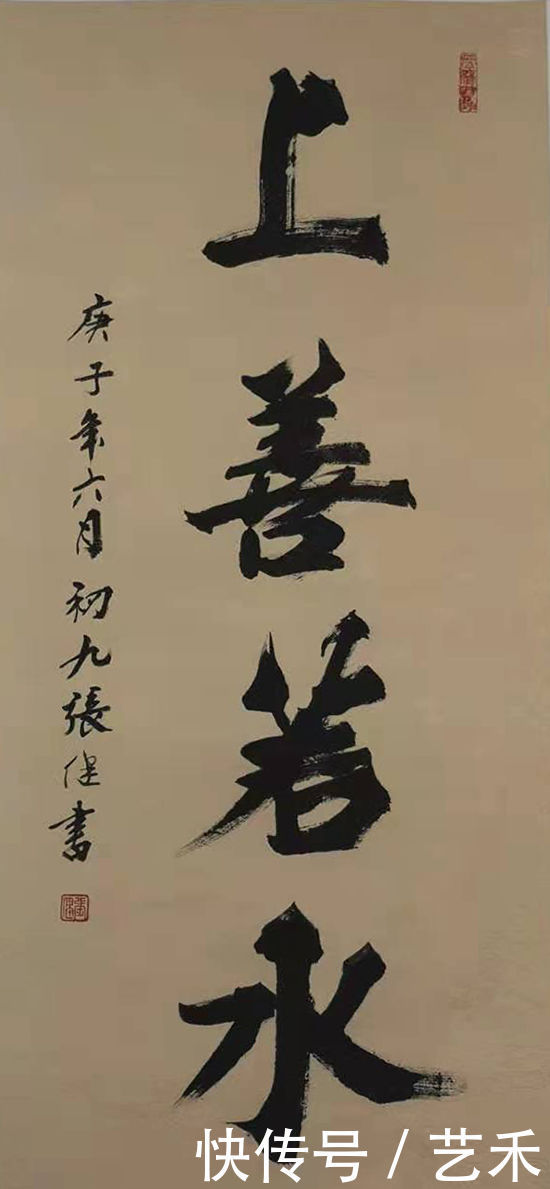 上善若水
庚子年六月初九張健書
快传号 / 艺禾